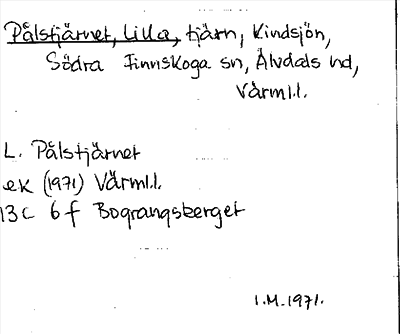 Pålstjärnet, Lilla, tjärn, Kindsjön,
Södra Finnskoga sn, Älvdals hd,
Värml.l.
L. Pålstjärnet
ek (1971) Värml.l.
13C 6f Bograngsberget
I.M. 1971.